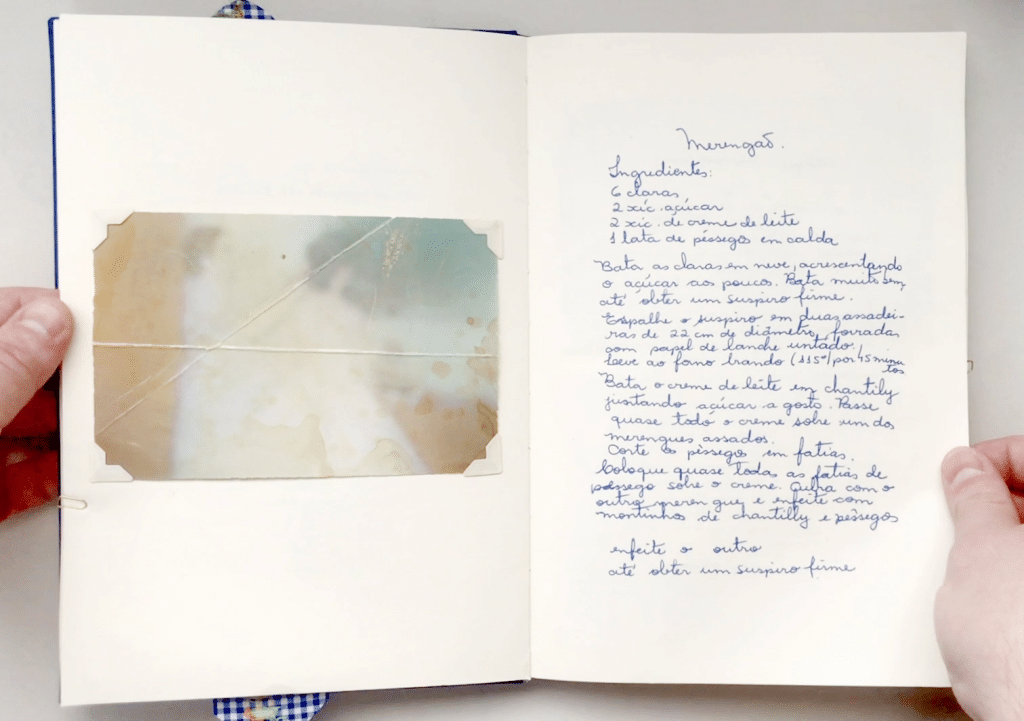 Merengão.
Ingredientes:
6 claras
2 xíc. açúcar
2 xíc. de creme de leite
1 lata de pêssegos em calda
Bata as claras em neve, acrescentando
o açúcar aos poucos. Bata muito bem,
até obter um suspiro firme.
Espalhe o suspiro em duas assadei-
ras de 22 cm de diâmetro, forradas
com papel de lanche untado,
leve ao forno brando (115º) por 45 minu
tos
Bata o creme de leite em chantily
juntando açúcar a gosto. Passe
quase todo o creme sobre um dos
merengues assados.
Corte os pêssegos em fatias.
Coloque quase todas as fatias de
pêssego sobre o creme. Cubra com o
outro merengue, e enfeite com
montinhos de chantilly e pêssegos
enfeite o outro
até obter um suspiro firme